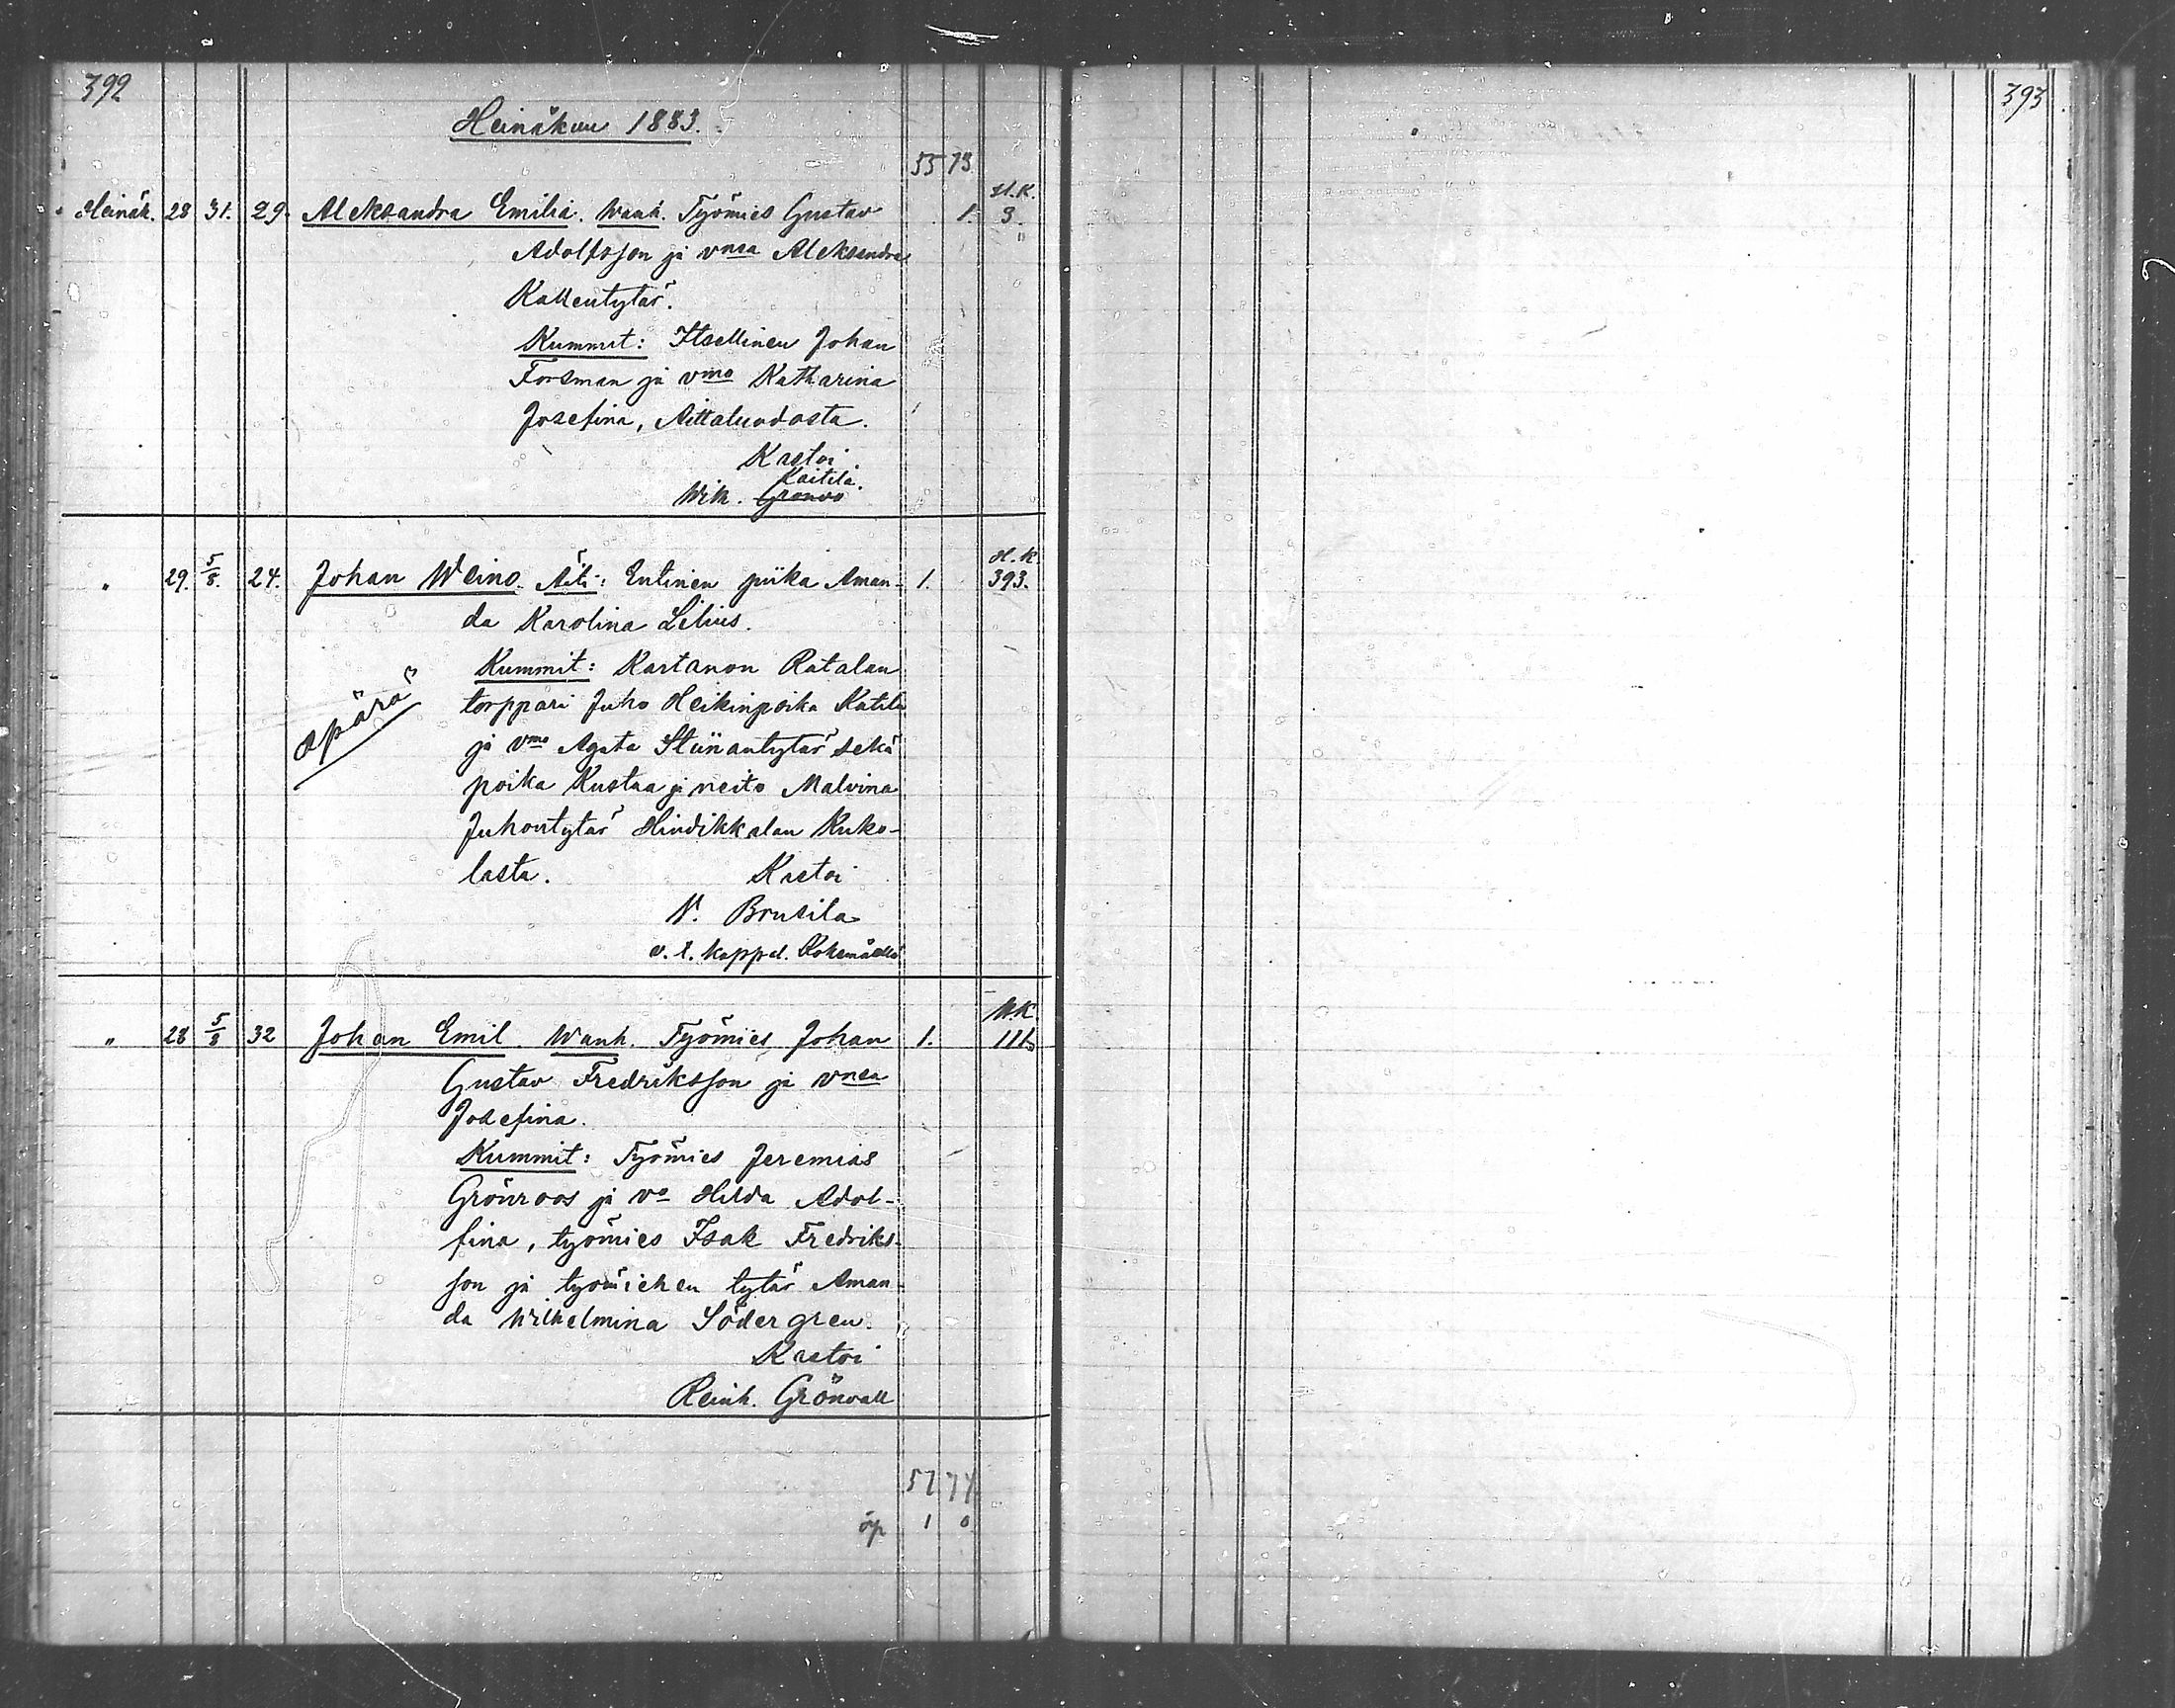 392
393
Heinäkuu 1883.
55 73
Heinäk. 28 31. 29. Aleksandra Emilia. Wanh. Työmies Gustav 1. H.K. 3.
Adolfsson ja vnsa Aleksandra
Kallentytär.
Kummit: Itsellinen Johan
Forsman ja vmo Katharina
Josefina, Aittaluodosta.
Kastoi.
Kaitila.
Wilh. Grönvo
" 29. 5/8. 24. Johan Weino. Äiti: Entinen piika Aman- 1. H.K. 393.
da Karolina Lilius.
Kummit: Kartanon Ratalan
torppari Juho Heikinpoika Katila
äpärä
ja vmo Agata Stiinantytär sekä
poika Kustaa ja neito Malvina
Juhontytär Hindikkalan Kuko-
lasta. Kastoi
N. Brusila
v. t. kappal. Kokemäellä
" 28 5/8 32 Johan Emil. Wanh. Työmies Johan 1. U.K. 111.
Gustav Fredriksson ja vnsa
Josefina.
Kummit: Työmies Jeremias
Grönroos ja vo Hilda Adol-
fina, työmies Isak Fredriks-
son ja työmiehen tytär Aman-
da Wilhelmina Södergren.
Kastoi
Reinh. Grönvall
57 74
äp 1 0